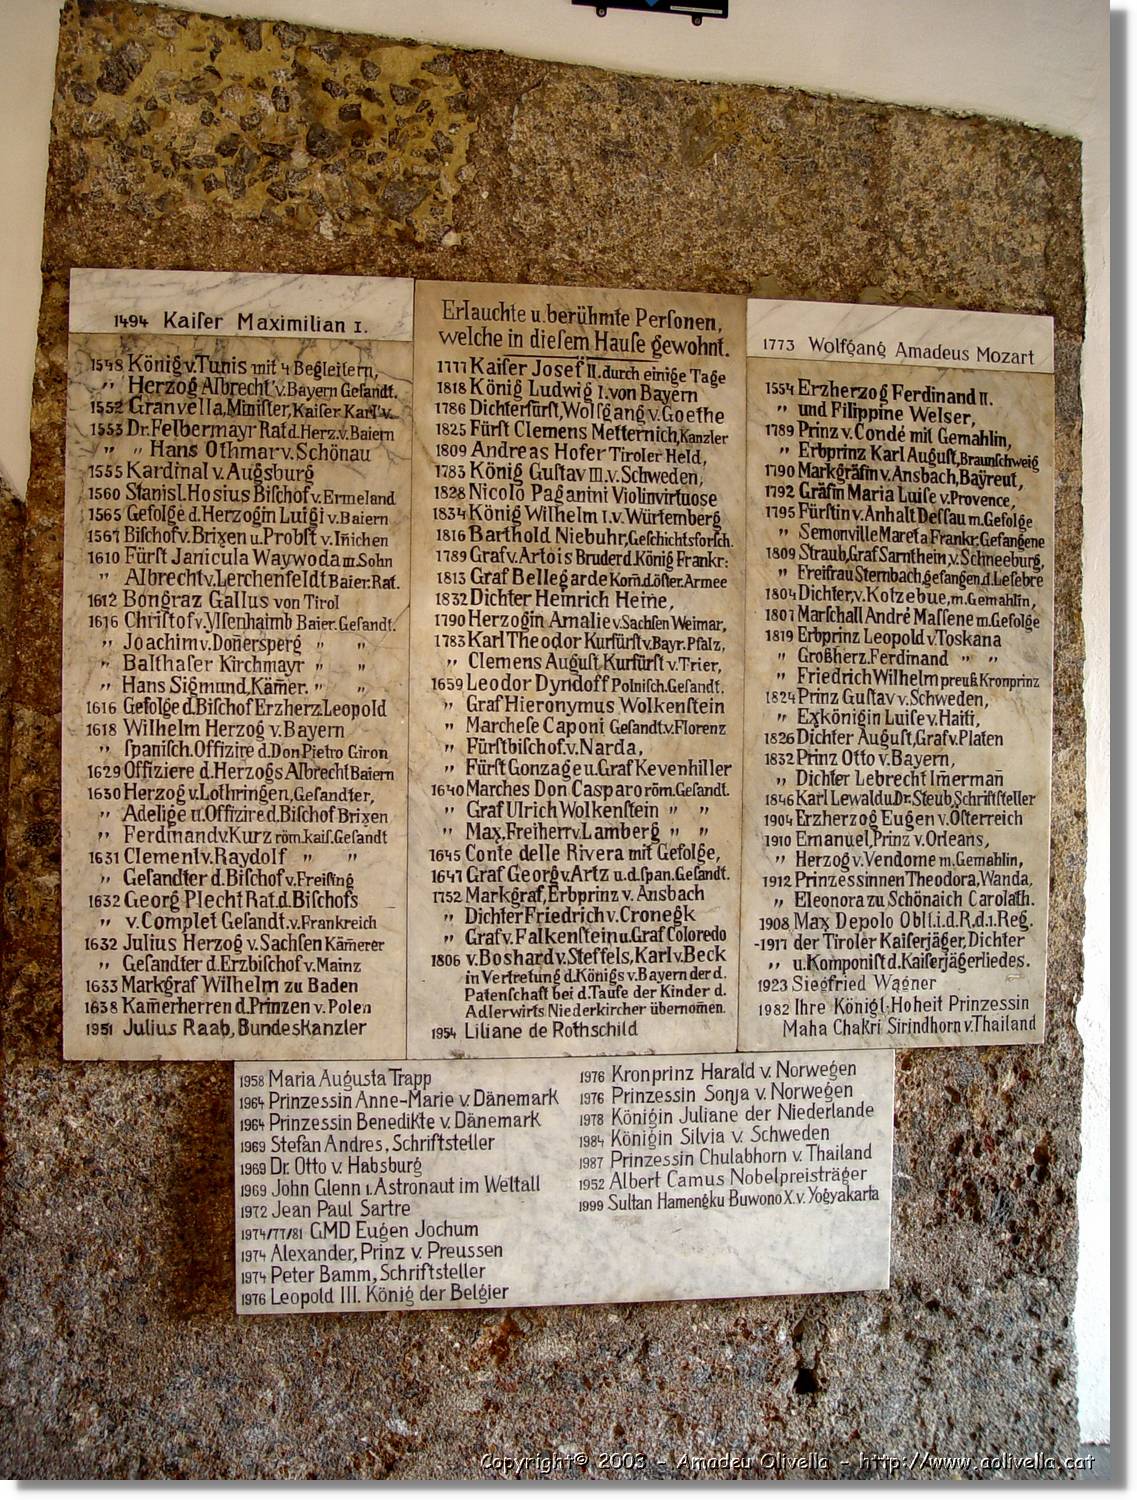 1494 Kaiſer Maximilian I.
1548 König v. Tunis mit 4 Begleitern,
" Herzog Albrecht v. Bayern Geſandt.
1552 Granvella, Miniſter, Kaiſer Karl v.
1553 Dr. Felbermayr Rat d. Herz. v. Baiern
" " Hans Othmar v. Schönau
1555 Kardinal v. Augsburg
1560 Stanisl. Hosius Biſchof v. Ermeland
1565 Gefolge d. Herzogin Luigi v. Baiern
1567 Biſchof v. Brixen u. Probſt v. Iñichen
1610 Fürſt Janicula Waywoda m. Sohn
" Albrecht v. Lerchenfeldt Baier. Rat.
1612 Bongraz Gallus von Tirol
1616 Chriſtof v. Ylſenhaimb Baier. Geſandt.
" Joachim v. Doñersperg " "
" Balthaſer Kirchmayr " "
" Hans Sigmund, Kam̃er. " "
1616 Gefolge d. Biſchof Erzherz. Leopold
1618 Wilhelm Herzog v. Bayern
" ſpaniſch. Offizire d. Don Pietro Giron
1629 Offiziere d. Herzogs Albrecht Baiern
1630 Herzog v. Lothringen, Geſandter,
" Adelige u. Offizire d. Biſchof Brixen
" Ferdinand v. Kurz röm. kaiſ. Geſandt
1631 Clement v. Raydolf " "
" Geſandter d. Biſchof v. Freiſing
1632 Georg Plecht Rat. d. Biſchofs
" v. Complet Geſandt. v. Frankreich
1632 Julius Herzog v. Sachſen Kam̃erer
" Geſandter d. Erzbiſchof v. Mainz
1633 Markgraf Wilhelm zu Baden
1638 Kam̃erherren d. Prinzen v. Polen
1951 Julius Raab, Bundeskanzler
Erlauchte u. berühmte Perſonen,
welche in dieſem Hauſe gewohnt.
1777 Kaiſer Joſef II. durch einige Tage
1818 König Ludwig I. von Bayern
1786 Dichterfürſt, Wolfgang v. Goethe
1825 Fürſt Clemens Metternich, Kanzler
1809 Andreas Hofer Tiroler Held,
1783 König Guſtav III. v. Schweden,
1828 Nicolo Paganini Violinvirtuose
1834 König Wilhelm I. v. Würtemberg
1816 Barthold Niebuhr, Geſchichtsforſch.
1789 Graf v. Artois Bruder d. König Frankr:
1813 Graf Bellegarde Kom̃. d. öſter. Armee
1832 Dichter Heinrich Heine,
1790 Herzogin Amalie v. Sachſen Weimar,
1783 Karl Theodor Kurfürſt v. Bayr. Pfalz,
" Clemens Auguſt Kurfürſt v. Trier,
1659 Leodor Dyndoff Polniſch. Geſandt.
" Graf Hieronymus Wolkenſtein
" Marcheſe Caponi Geſandt. v. Florenz
" Fürſtbiſchof. v. Narda,
" Fürſt Gonzage u. Graf Kevenhiller
1640 Marches Don Casparo röm. Geſandt.
" Graf Ulrich Wolkenſtein " "
" Max. Freiherr v. Lamberg " "
1645 Conte delle Rivera mit Gefolge,
1647 Graf Georg v. Artz u. d. ſpan. Geſandt.
1752 Markgraf, Erbprinz v. Ansbach
" Dichter Friedrich v. Cronegk
" Graf v. Falkenſtein u. Graf Coloredo
1806 v. Boshard v. Steffels, Karl v. Beck
in Vertretung d. Königs v. Bayern der d.
Patenſchaft bei d. Taufe der Kinder d.
Adlerwirts Niederkircher übernom̃en.
1954 Liliane de Rothschild
1773 Wolfgang Amadeus Mozart
1554 Erzherzog Ferdinand II.
" und Filippine Welser,
1789 Prinz v. Condé mit Gemahlin,
" Erbprinz Karl Auguſt, Braunſchweig
1790 Markgräfin v. Ansbach, Baÿreut,
1792 Gräfin Maria Luiſe v. Provence,
1795 Fürſtin v. Anhalt Deſſau m. Gefolge
" Semonville Mareta Frankr. Gefangene
1809 Straub, Graf Sarnthein, v. Schneeburg,
" Freifrau Sternbach, gefangen. d. Lefebre
1804 Dichter, v. Kotzebue, m. Gemahlin,
1807 Marſchall André Maſſene m. Gefolge
1819 Erbprinz Leopold v. Toskana
" Großherz. Ferdinand " "
" Friedrich Wilhelm preuß. Kronprinz
1824 Prinz Guſtav v. Schweden,
" Exkönigin Luiſe v. Haiti,
1826 Dichter Auguſt, Graf v. Platen
1832 Prinz Otto v. Bayern,
" Dichter Lebrecht Im̃erman̄
1846 Karl Lewald u. Dr. Steub, Schriftſteller
1904 Erzherzog Eugen v. Öſterreich
1910 Emanuel, Prinz v. Orleans,
" Herzog v. Vendome m. Gemahlin,
1912 Prinzessinnen Theodora, Wanda,
" Eleonora zu Schönaich Carolath.
1908 Max Depolo Obſt. i. d. R. d. 1. Reg.
-1917 der Tiroler Kaiſerjäger, Dichter
" u. Komponiſt d. Kaiſerjägerliedes.
1923 Siegfried Wagner
1982 Ihre Königl. Hoheit Prinzessin
Maha Chakri Sirindhorn v. Thailand
1958 Maria Augusta Trapp
1964 Prinzessin Anne-Marie v. Dänemark
1964 Prinzessin Benedikte v. Dänemark
1969 Stefan Andres, Schriftsteller
1969 Dr. Otto v. Habsburg
1969 John Glenn 1. Astronaut im Weltall
1972 Jean Paul Sartre
1974/77/81 GMD Eugen Jochum
1974 Alexander, Prinz v. Preussen
1974 Peter Bamm, Schriftsteller
1976 Leopold III. König der Belgier
1976 Kronprinz Harald v. Norwegen
1976 Prinzessin Sonja v. Norwegen
1978 Königin Juliane der Niederlande
1984 Königin Silvia v. Schweden
1987 Prinzessin Chulabhorn v. Thailand
1952 Albert Camus Nobelpreisträger
1999 Sultan Hamengku Buwono X. v. Yogyakarta
Copyright© 2003 - Amadeu Olivella - http://www.aolivella.cat